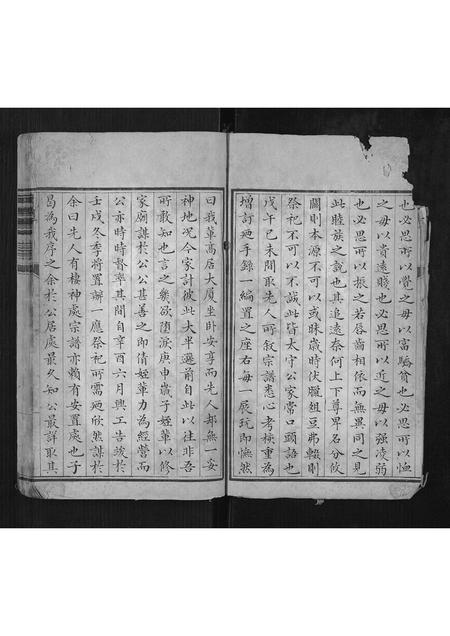 也必思所以覺之毋以富驕貧也必思所以恤
之毋以貴遠賤也必思所以近之毋以强凌弱
也必思所以振之若唇齒相依而無異同之見
此睦族之說也其追遠奈何上下尊卑名分攸
關則本源不可以或昧歲時伏臘俎豆弗輟則
祭祀不可以不誠此皆太守公家常口頭語也
戊午己未間取先人所敘宗譜悉心考核重為
增訂手錄一編置之座右每一展玩即憮然
曰我輩高居大廈坐卧安享而先人却無一安
神地况今家計彼此大半遜前自此以往非吾
所敢知也言之幾欲墮淚庚申歲子姪輩以修
家廟謀於公公甚善之即倩姪輩力為經營而
公亦時時督率其間自辛酉六月興工告竣於
壬戌冬季將置辦一應祭祀所需廼欣然謀於
余曰先人有棲神處宗譜亦賴有安置處也子
曷為我序之余於公居處最久知公最詳取其